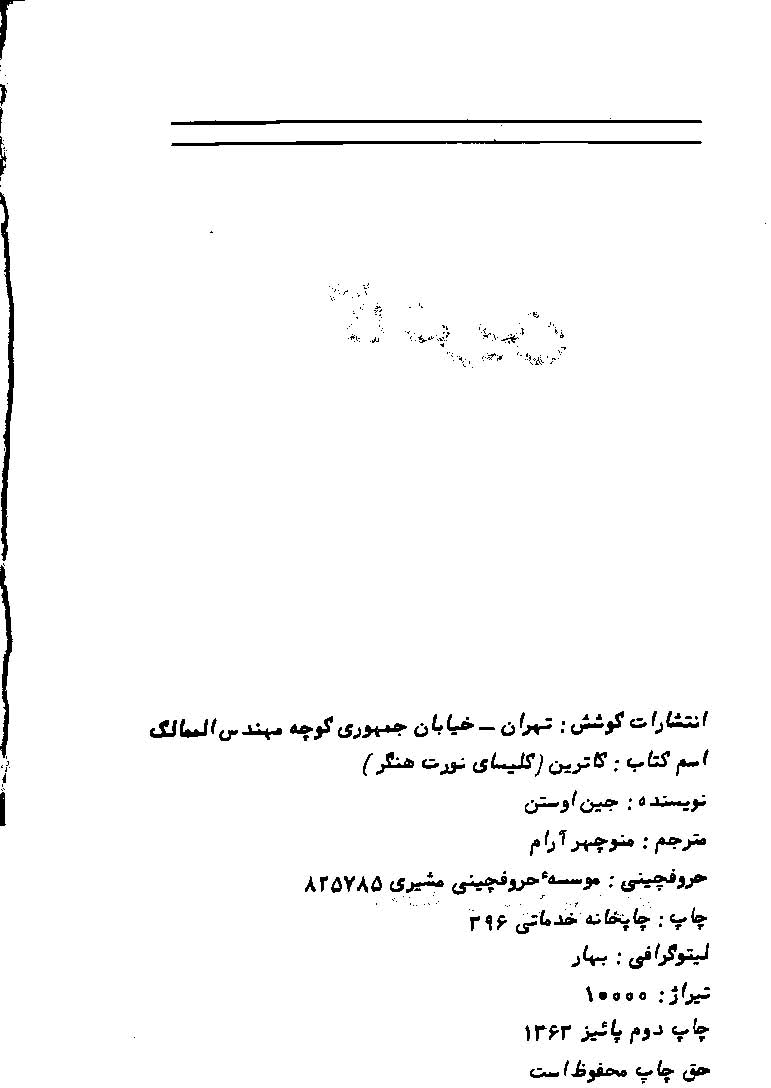 انتشارات کوشش : تهران ـ خیابان جمهوری کوچه مهندس الممالک
اسم کتاب : کاترین (کلیسای نورت هنگر)
نویسنده : جین اوستن
مترجم : منوچهر آرام
حروفچینی : موسسهٔ حروفچینی مشیری ۸۲۵۷۸۵
چاپ : چاپخانه خدماتی ۳۹۶
لیتوگرافی : بهار
تیراژ : ۱۰۰۰۰
چاپ دوم پائیز ۱۳۶۳
حق چاپ محفوظ است